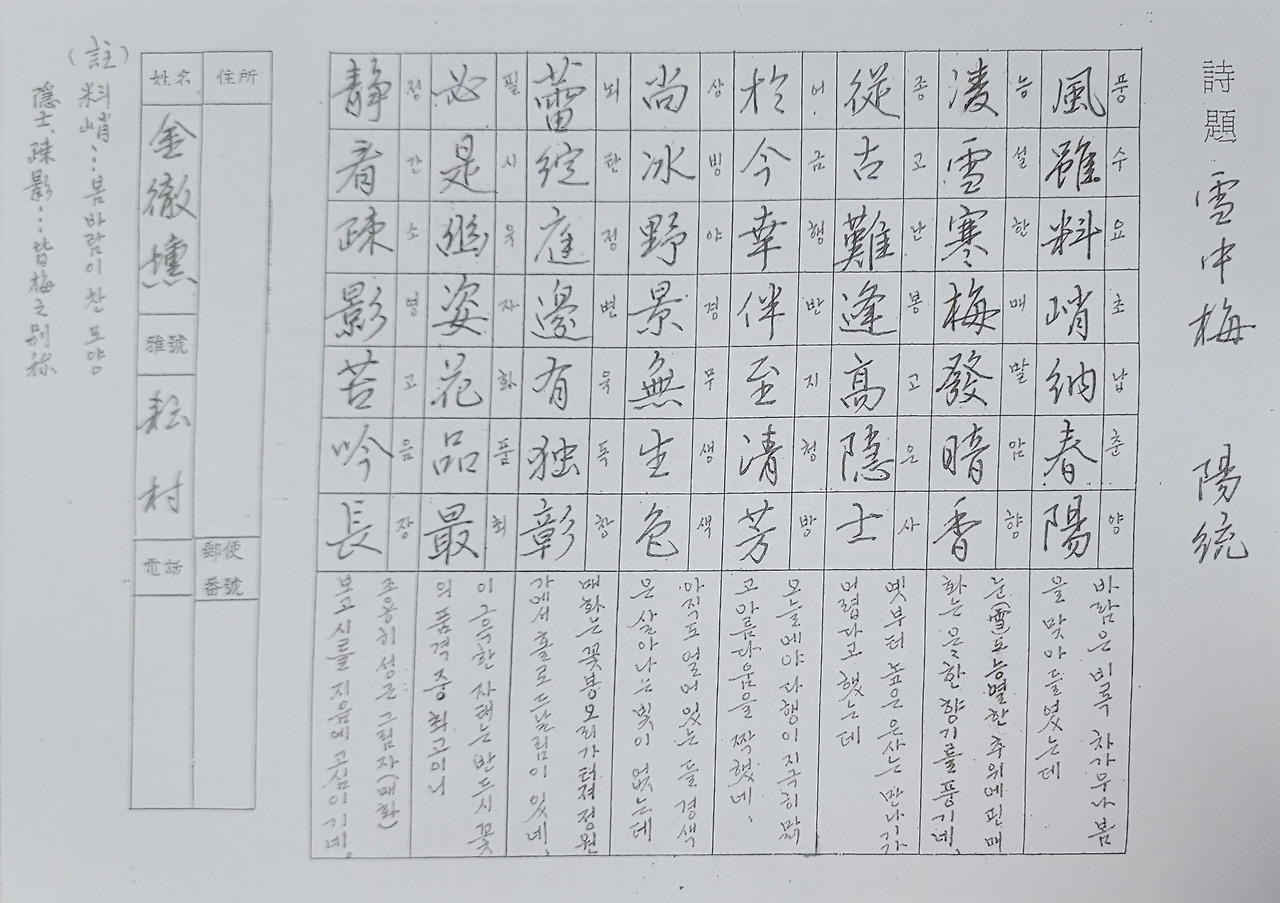 詩題 雪中梅 陽統
風雖料峭納春陽
풍수요초납춘양
바람은 비록 차가우나 봄
을 맞아 들였는데
凌雪寒梅發暗香
능설한매발암향
눈(雪)도 능멸한 추위에 핀 매
화는 은은한 향기를 풍기네.
從古難逢高隱士
종고난봉고은사
옛부터 높은 은사는 만나기
어렵다고 했는데
於今幸伴至清芳
어금행반지청방
오늘에야 다행이 지극히 맑
고 아름다움을 짝했네.
尚冰野景無生色
상빙야경무생색
아직도 얼어 있는 들 경색
은 살아나는 빛이 없는데
蕾綻庭邊有独彰
뇌탄정변유독창
매화는 꽃봉오리가 터져 정원
가에서 홀로 드날림이 있네.
必是幽姿花品最
필시유자화품최
이 그윽한 자태는 반드시 꽃
의 품격 중 최고이니
靜看疎影苦吟長
정간소영고음장
조용히 성근 그림자(매화)
보고 시를 지음에 고심이 기네.
住所
郵便
番號
姓名
金徹壎
雅號
耘村
電話
(註) 料峭… 봄바람이 찬 모양
隱士、疎影… 皆梅之別称